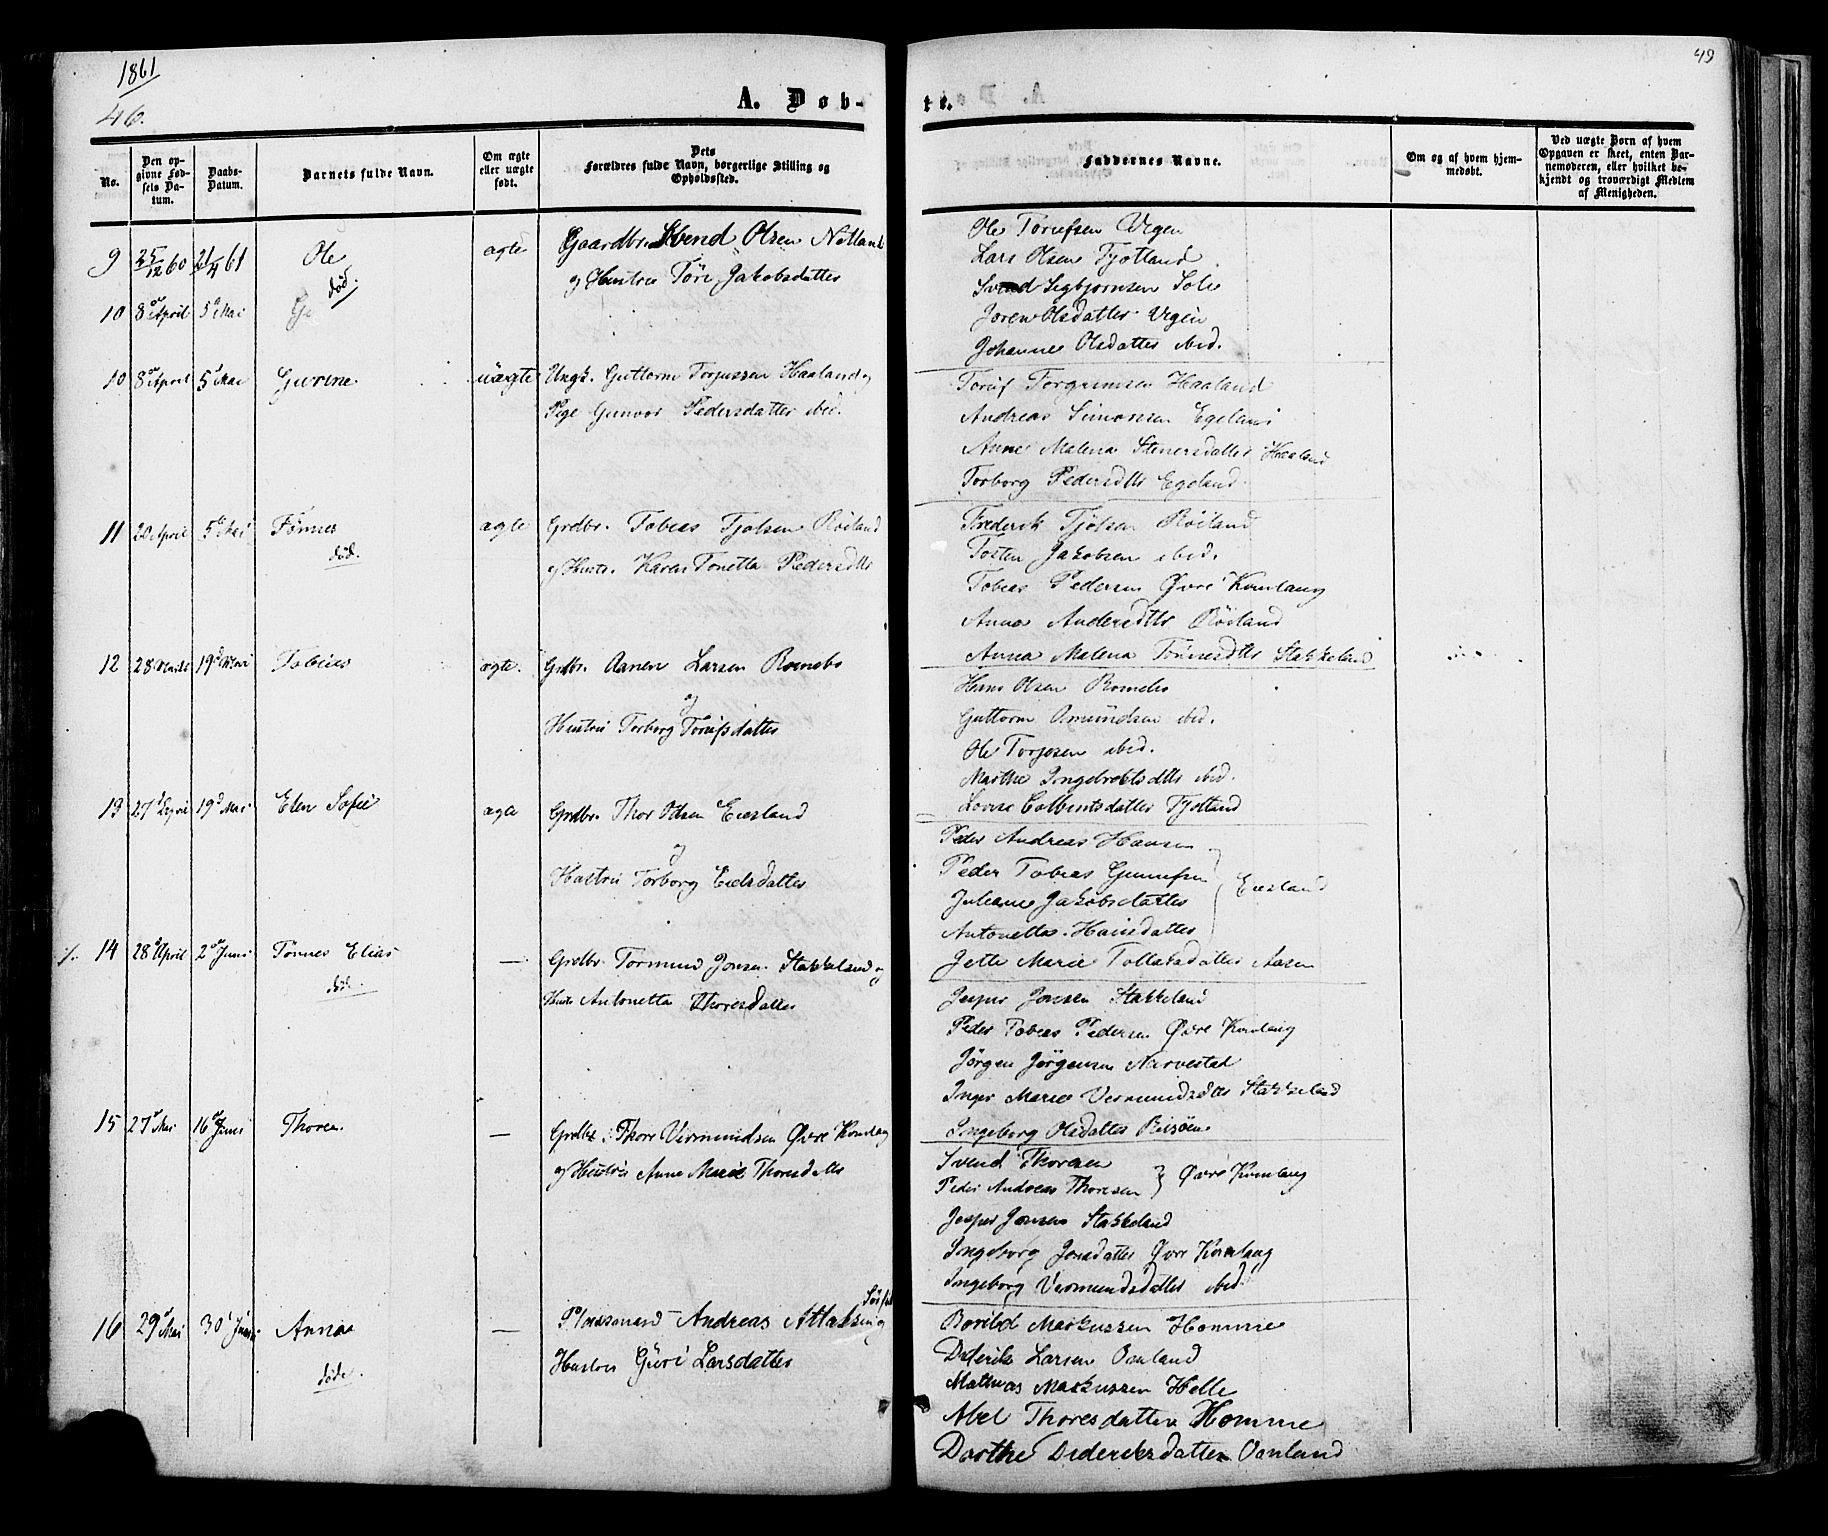 1861
46.
49
A. Døb-
te.
No.
Den op-
givne Fød-
sels Da-
tum.
Daabs-
Datum.
Barnets fulde Navn.
Om ægte
eller uægte
født.
Dets
Forældres fulde Navn, borgerlige Stilling og
Opholdssted.
Faddernes Navne.
Om og af hvem hjem-
medøbt.
Ved uægte Børn af hvem
Opgaven er skeet, enten Bar-
nemoderen, eller hvilket be-
kjendt og troværdigt Medlem
af Menigheden.
9 25/12 60 21/4 61 Ole ægte Gaardbr. Svend Olsen Netland
død.
og Hustru Töri Jakobsdatter
Ole Torufsen Vegen
Lars Olsen Tjotland
Svend Segbjornsen Sole
Joren Olsdatter Vegen
Johanne Olsdatter ibid.
10 8de April 5te Mai
10 8de April 5te Mai Gurine uægte Ungk. Guttorm Torjussen Haaland og
Pige Gunvor Pedersdatter ibid.
Toruf Torgrimsen Haaland
Andreas Simonsen Egeland
Anne Malena Stenersdatter Haaland
Torborg Pedersdtr Egeland
11 20 April 5te Mai Tönnes ægte Grdbr. Tobias Tjølsen Röiland
død.
og Hustr. Karen Tonetta Pedersdtr
Frederik Tjølsen Röiland
Tosten Jakobsen ibid.
Tobias Pedersen Øvre Kvinlaug
Anna Andersdtr Röiland
Anna Malena Tönnesdtr Stakkeland
12 28 Marts 19de Mai Tobias ægte. Grdbr. Aanen Larsen Romebo
og
Hustru Torborg Torufsdatter
Hans Olsen Romebo
Guttorm Omundsen ibid.
Ole Torjesen ibid.
Marthe Ingebretsdtr ibid.
Lovise Colbentsdatter Tjotland
13 27de April 19de Mai Elen Sofie ægte Grdbr. Thor Olsen Eiesland
og
Hustru Torborg Eielsdatter
Peder Andreas Hansen
Peder Tobias Gunnufsen } Eiesland
Juliane Jakobsdatter
Antonette Hansdatter
Jette Marie Tollaksdatter Aasen
14 28de April 2den Juni Tönnes Elias — Grdbr. Tormund Jonsen Stakkeland og
død.
Hustr Antonetta Thoresdatter
Jesper Jonsen Stakkeland
Peder Tobias Pedersen Øvre Kvinlaug
Jörgen Jörgensen Narvestad
Inger Marie Vermundsdtr Stakkeland
Ingeborg Olsdatter Risöen
15 27de Mai 16de Juni Thorea — Grdbr. Thore Vermundsen Øvre Kvinlaug
og Hustru Anne Marie Thorsdatter
Svend Thoresen
Peder Andreas Thoresen } Øvre Kvinlaug
Jesper Jonsen Stakkeland
Ingeborg Jonsdatter Øvre Kvinlaug
Ingeborg Vermundsdatter ibid
16 29de Mai 30te Juni Anna — Pladsmand Andreas Attaksen
døde.
Hustru Guri Larsdatter
Borild Markussen Homme
Diderik Larsen Oanland
Mathias Markussen Helle
Abel Thoresdatter Homme
Dorthe Dideriksdatter Oanland